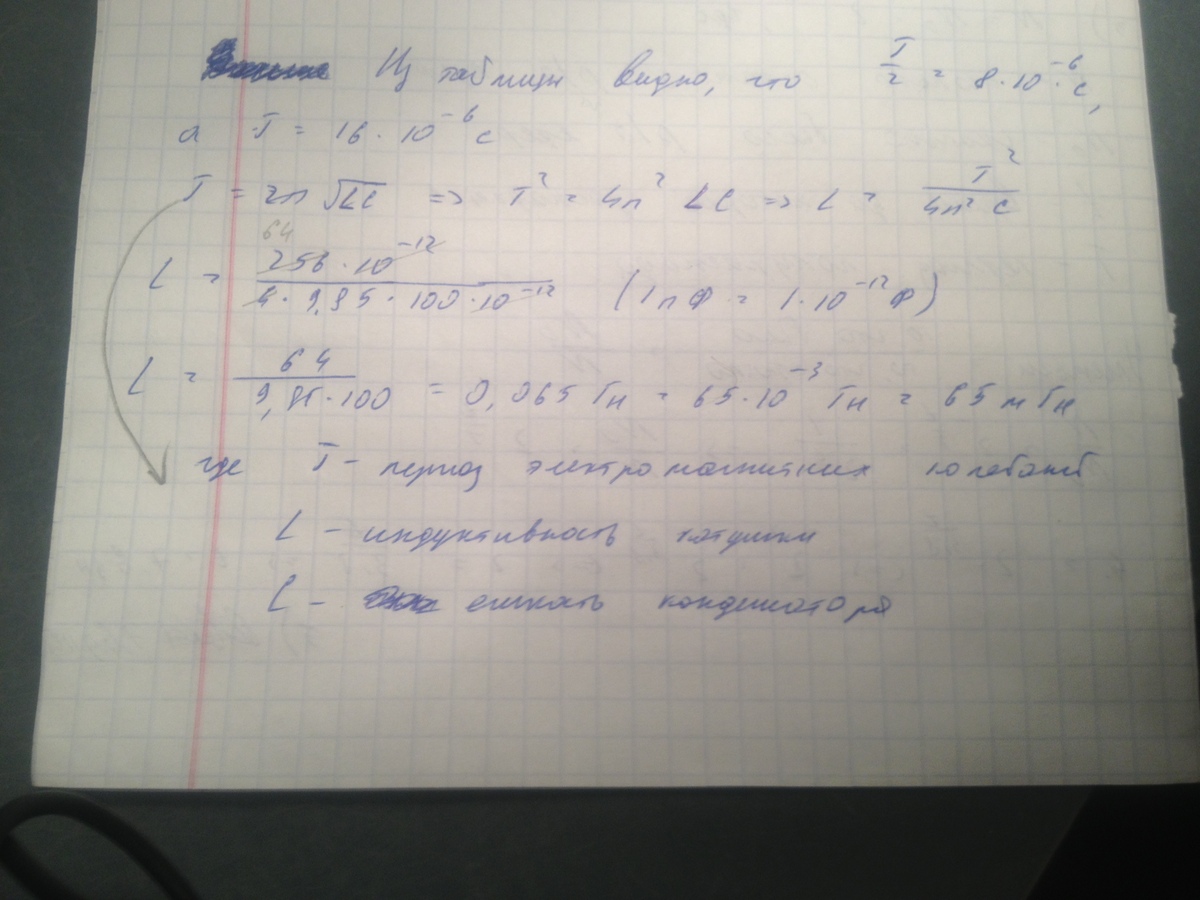 Из таблицы видно, что T/2 = 8·10⁻⁶ с,
а T = 16·10⁻⁶ с
T = 2π √LC => T² = 4π² LC => L = T²/4π² C
64
L = 256·10⁻¹²/4·9,85·100·10⁻¹² (1 пФ = 1·10⁻¹² Ф)
L = 64/9,85·100 = 0,065 Гн = 65·10⁻³ Гн = 65 мГн
где T – период электромагнитных колебаний
L – индуктивность катушки
C – емкость конденсатора